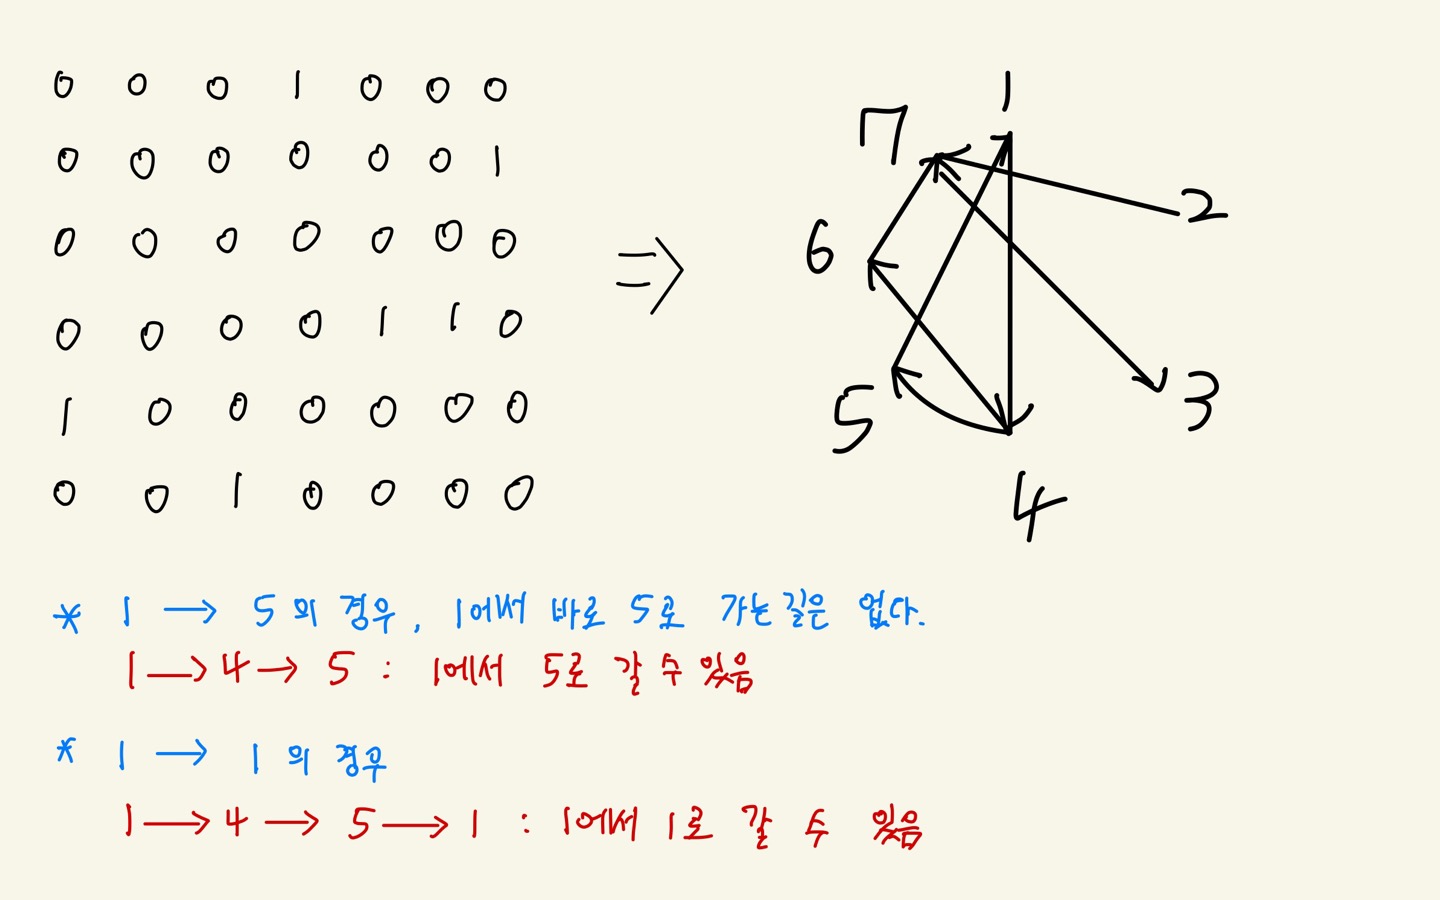 0 0 0 1 0 0 0
0 0 0 0 0 0 1
0 0 0 0 0 0 0
0 0 0 0 1 1 0
1 0 0 0 0 0 0
0 0 1 0 0 0 0
⇒
1
7
2
6
3
5
4
* 1 → 5 의 경우, 1에서 바로 5로 가는길은 없다.
1 → 4 → 5 : 1에서 5로 갈 수 있음
* 1 → 1 의 경우
1 → 4 → 5 → 1 : 1에서 1로 갈 수 있음